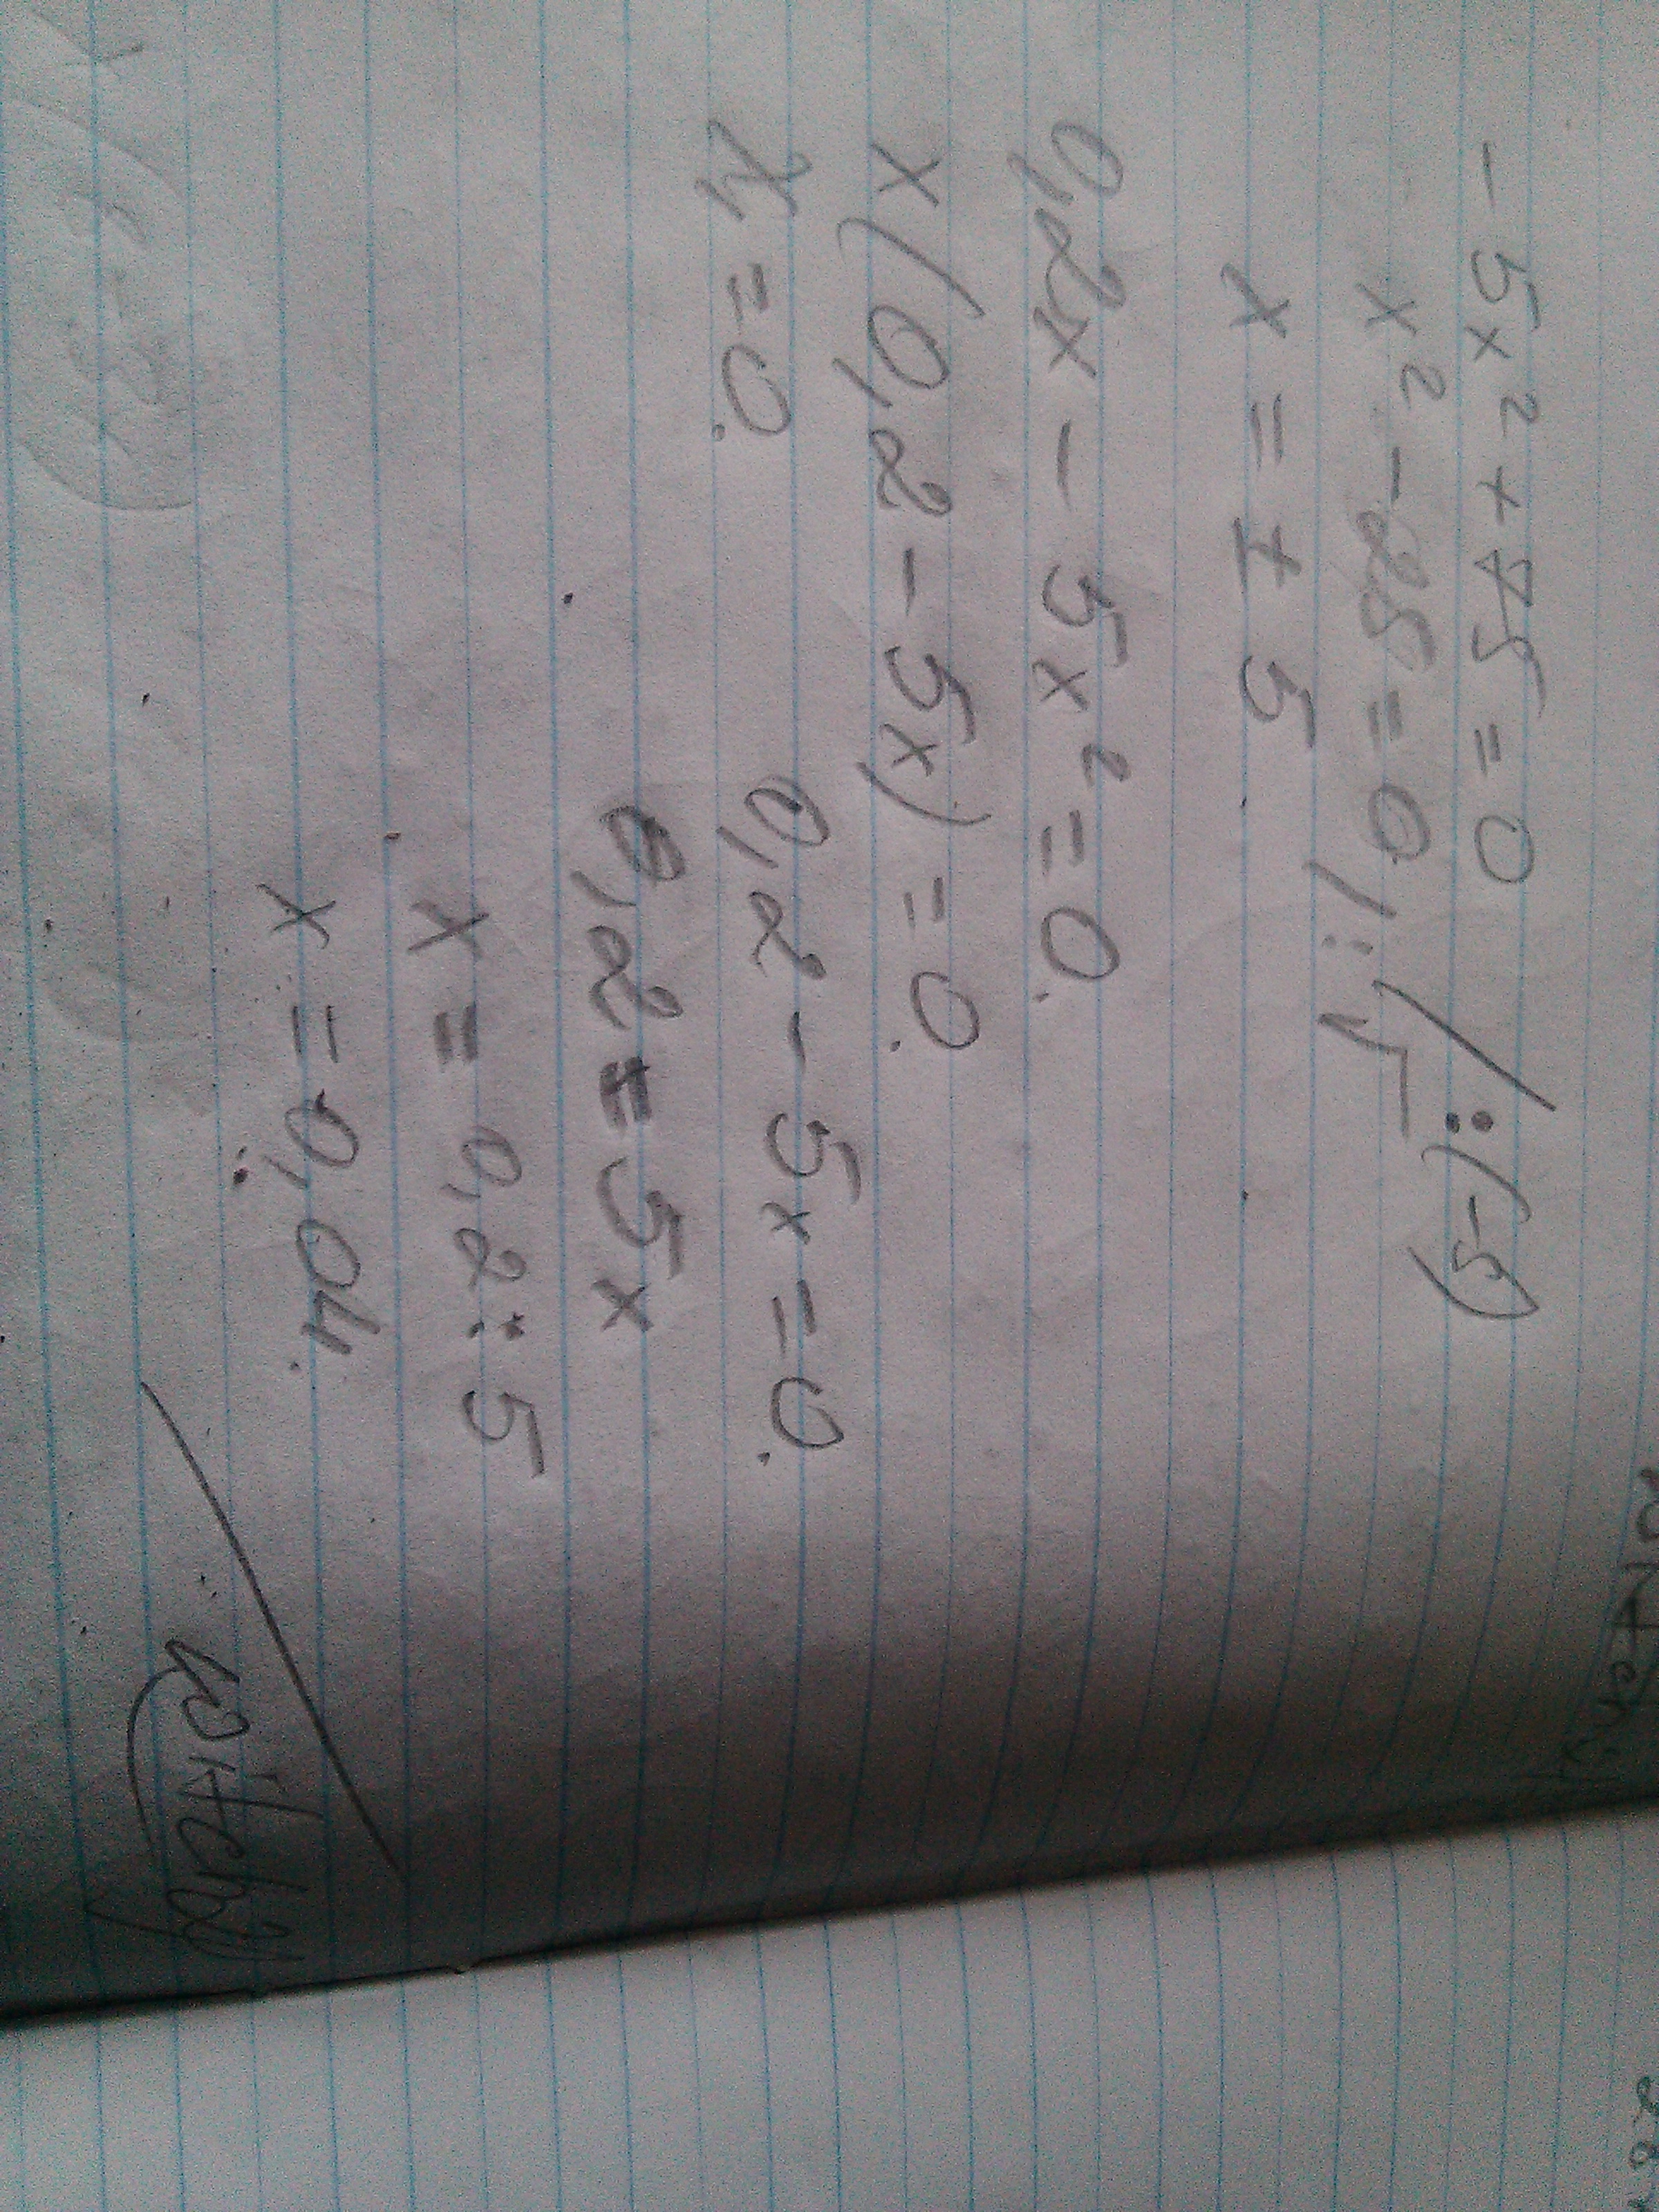 - 5x² + 75 = 0 /:(-5)
x² - 25 = 0 /:√
x = ± 5
0,2x - 5x² = 0.
x(0,2 - 5x) = 0.
x = 0. 0,2 - 5x = 0.
0,2 = 5x
x = 0,2 : 5
x = 0,04.